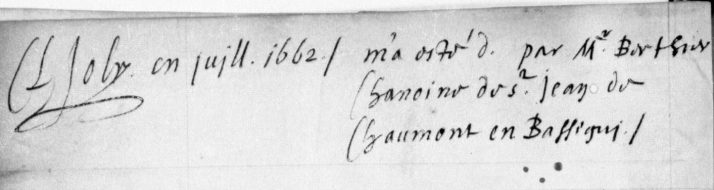 Cl Joly. en juill. 1662./ m'a esté d. par Mr. Berthier
Chanoine de sr. jean de
Chaumont en Bassigni./